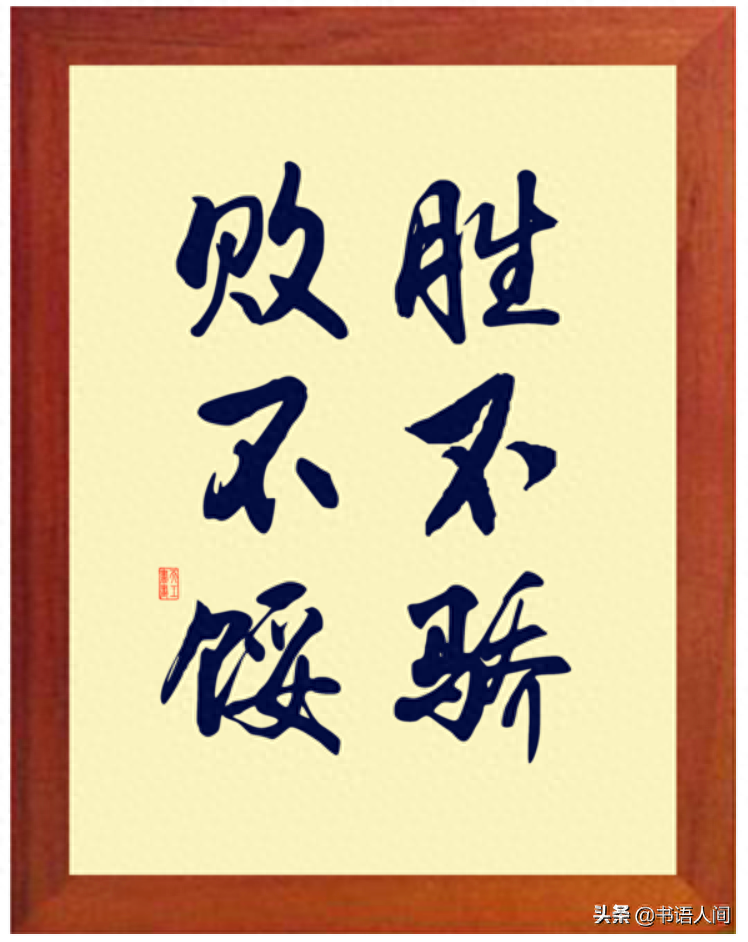 胜不骄
败不馁
头条 @书语人间